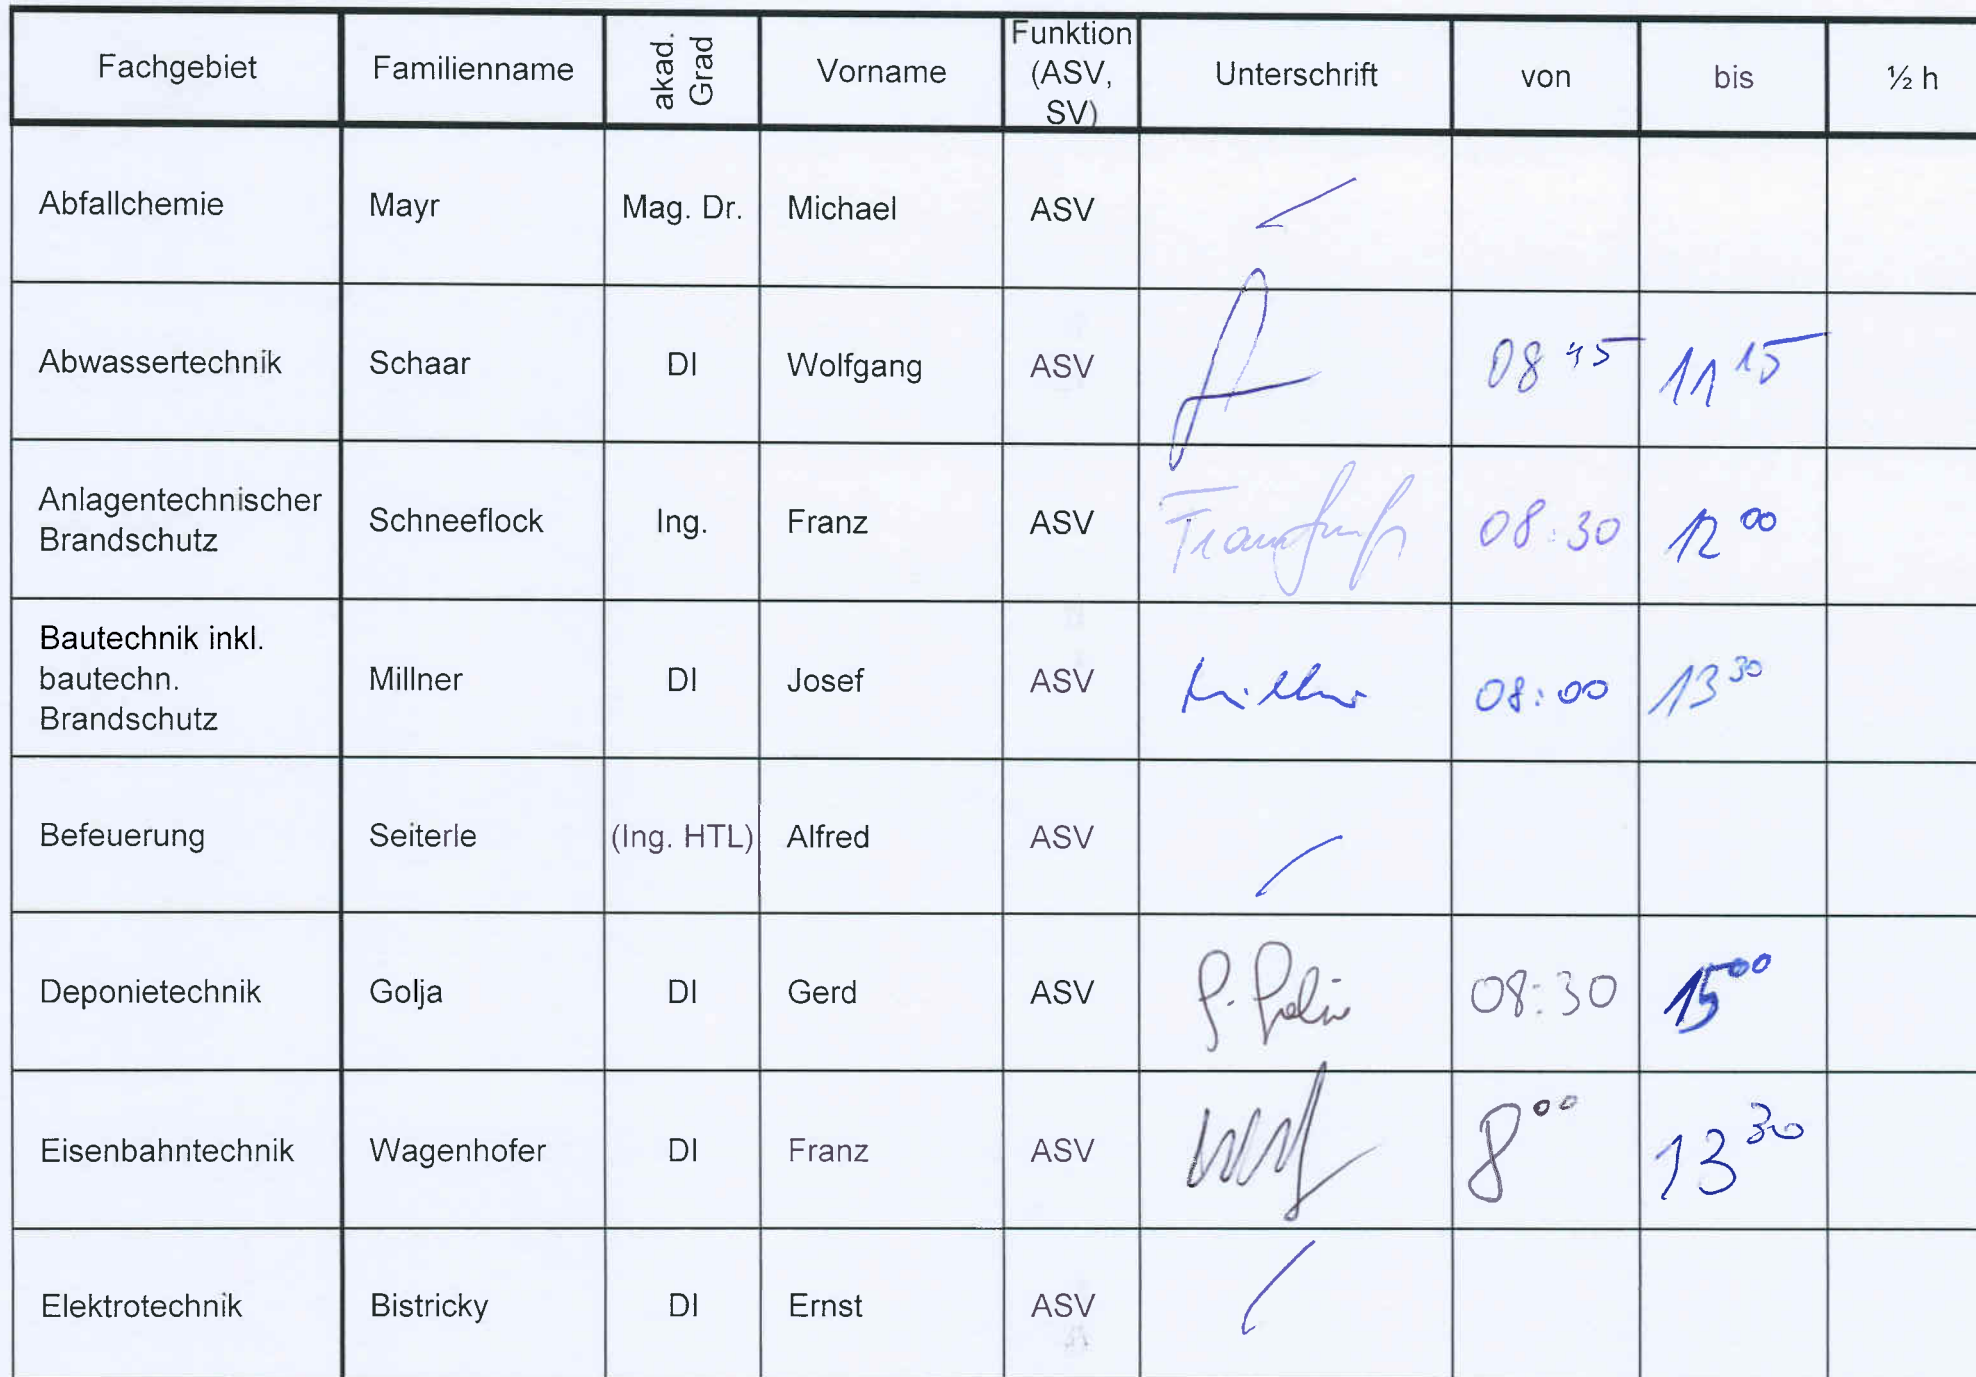 Fachgebiet Familienname akad. Grad Vorname Funktion (ASV, SV) Unterschrift von bis ½ h
Abfallchemie Mayr Mag. Dr. Michael ASV
Abwassertechnik Schaar DI Wolfgang ASV 08 45 11 15
Anlagentechnischer Brandschutz Schneeflock Ing. Franz ASV 08:30 12 00
Bautechnik inkl. bautechn. Brandschutz Millner DI Josef ASV Millner 08:00 13 30
Befeuerung Seiterle (Ing. HTL) Alfred ASV
Deponietechnik Golja DI Gerd ASV G. Golja 08:30 15 00
Eisenbahntechnik Wagenhofer DI Franz ASV 8 00 13 30
Elektrotechnik Bistricky DI Ernst ASV